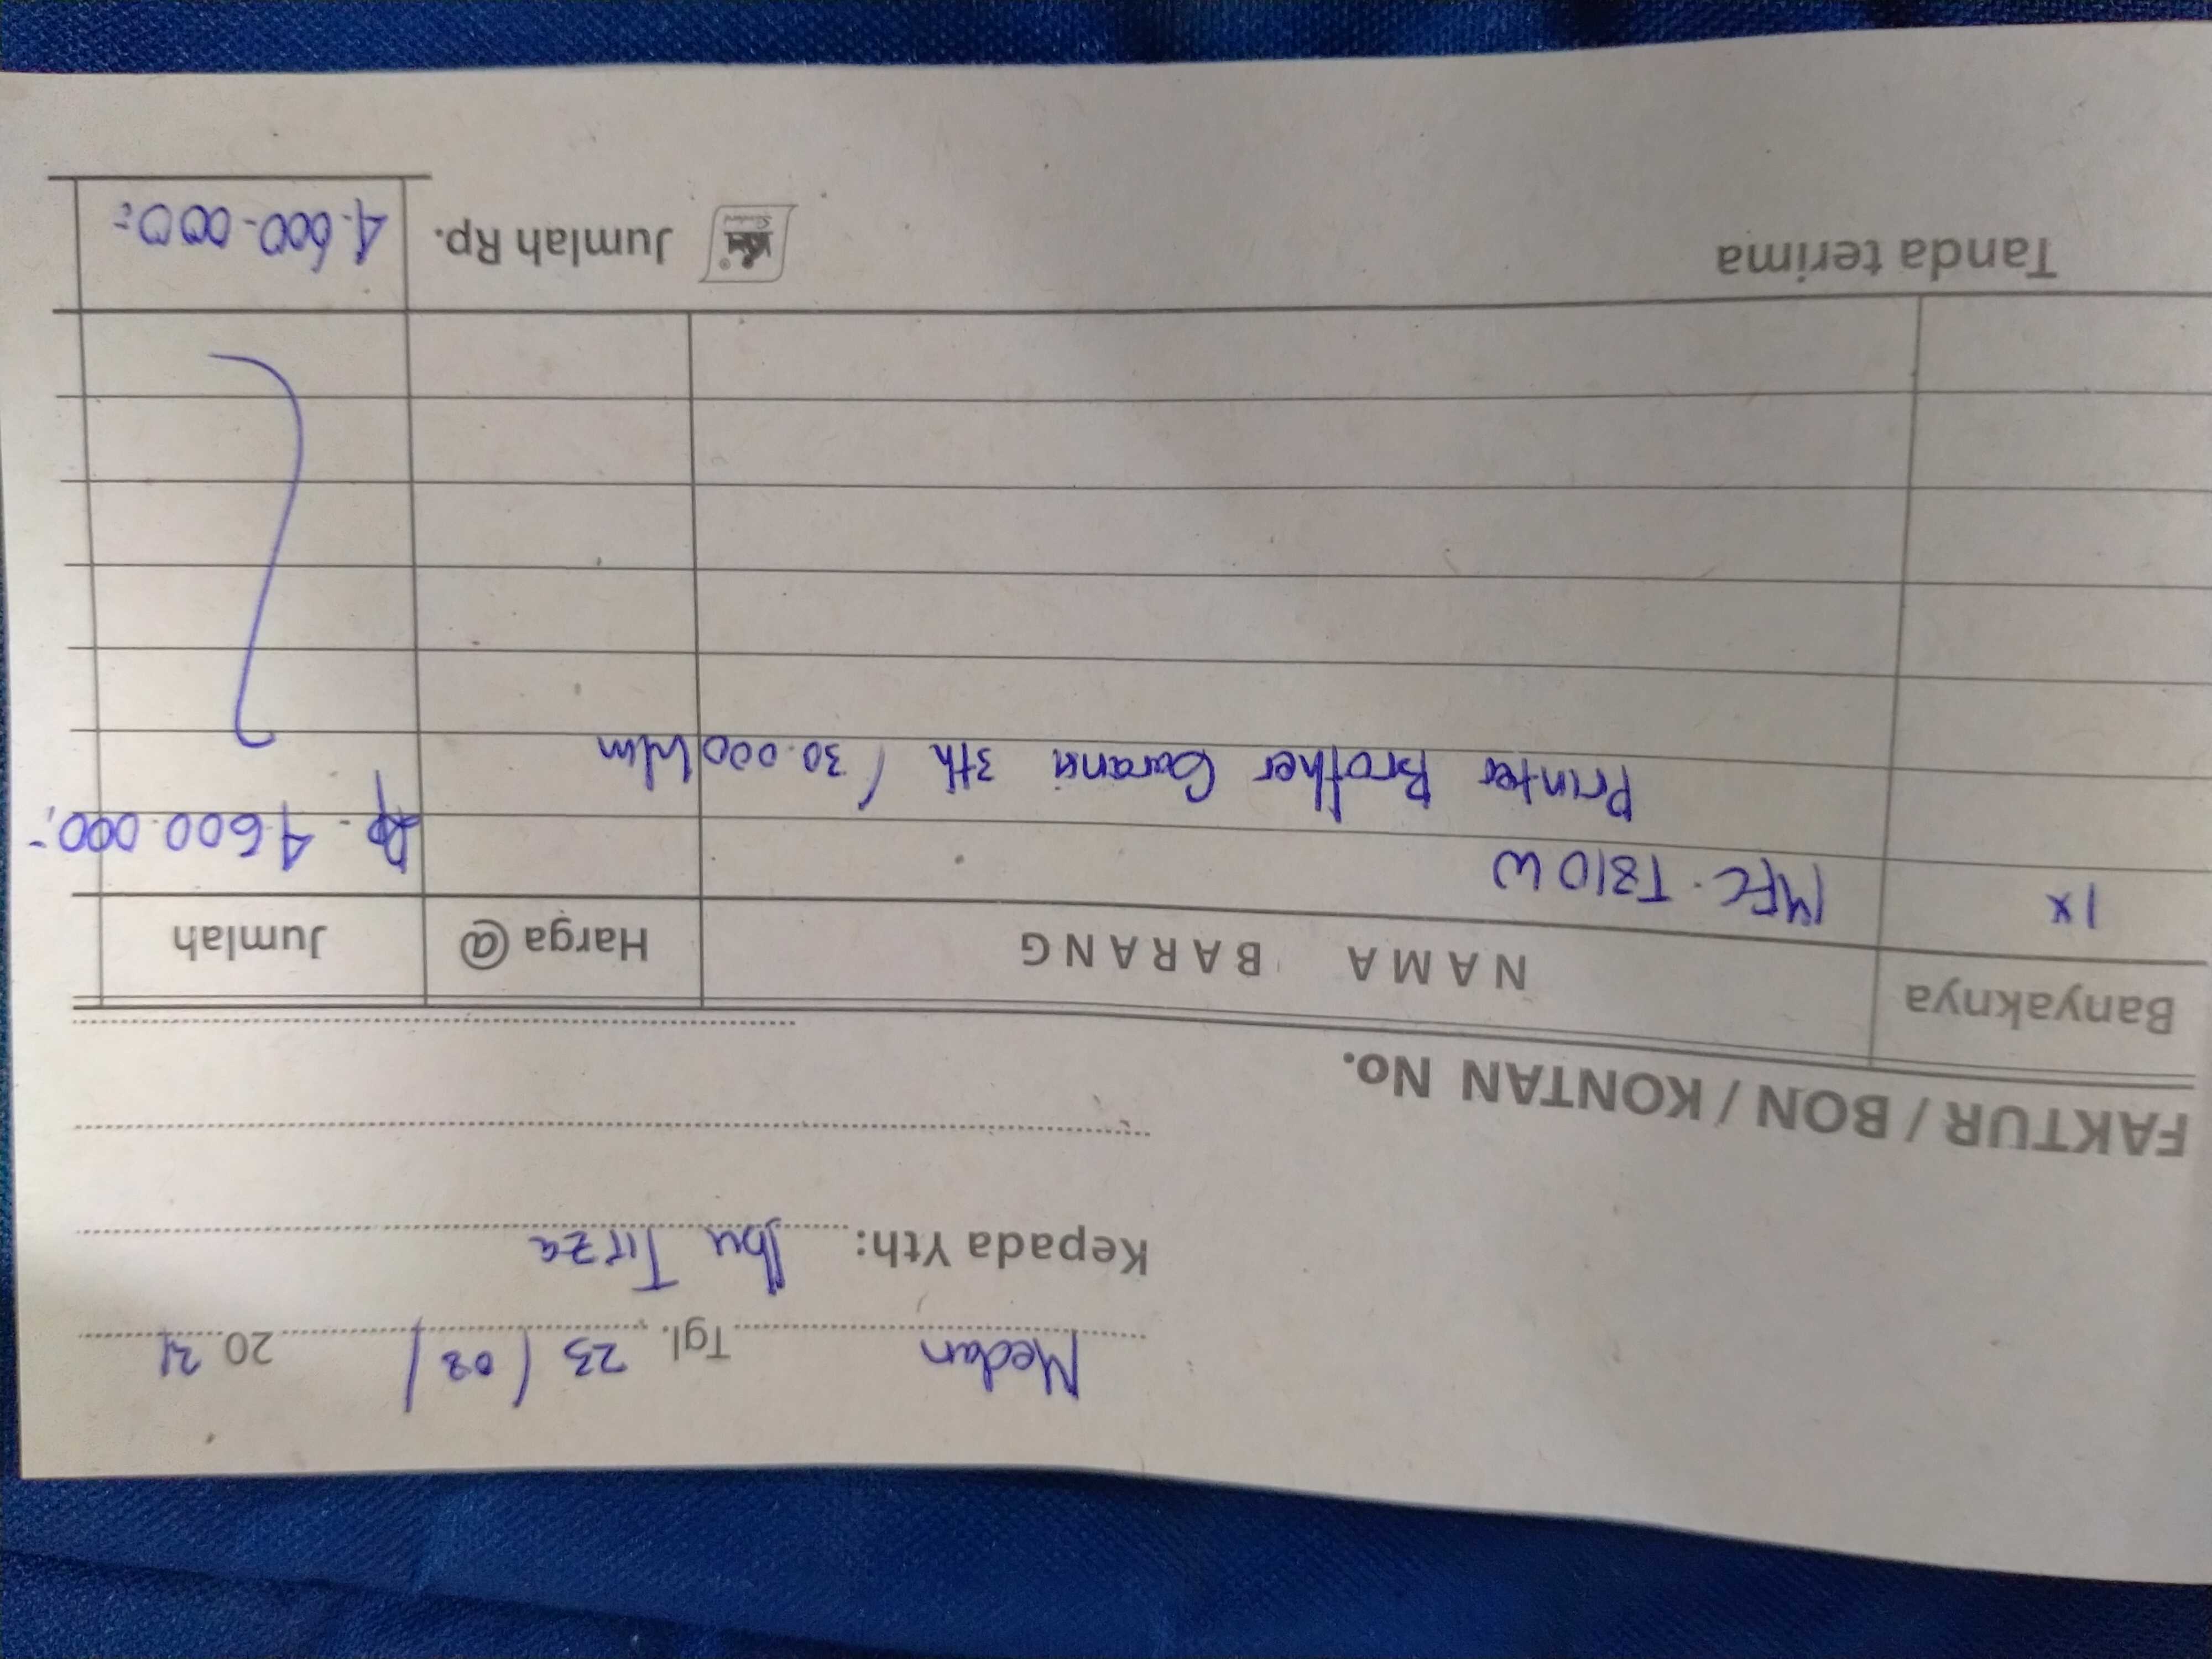 Medan Tgl. 23 / 02 / 20 21
Kepada Yth: Ibu Tirza
FAKTUR / BON / KONTAN No.
Banyaknya NAMA BARANG Harga @ Jumlah
1x MFC-T810W Rp. 4.600.000,-
Printer Brother Garansi 3th / 30.000 lbr
Tanda terima Jumlah Rp. 4.600.000,-